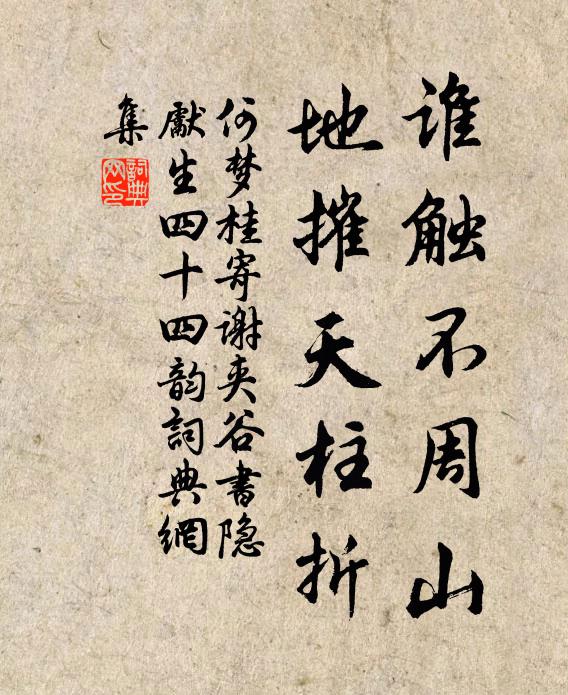 谁触不周山
地摧天柱折
何梦桂寄谢夹谷书隐
獻生四十四韵詞典網
集
詞典
网印